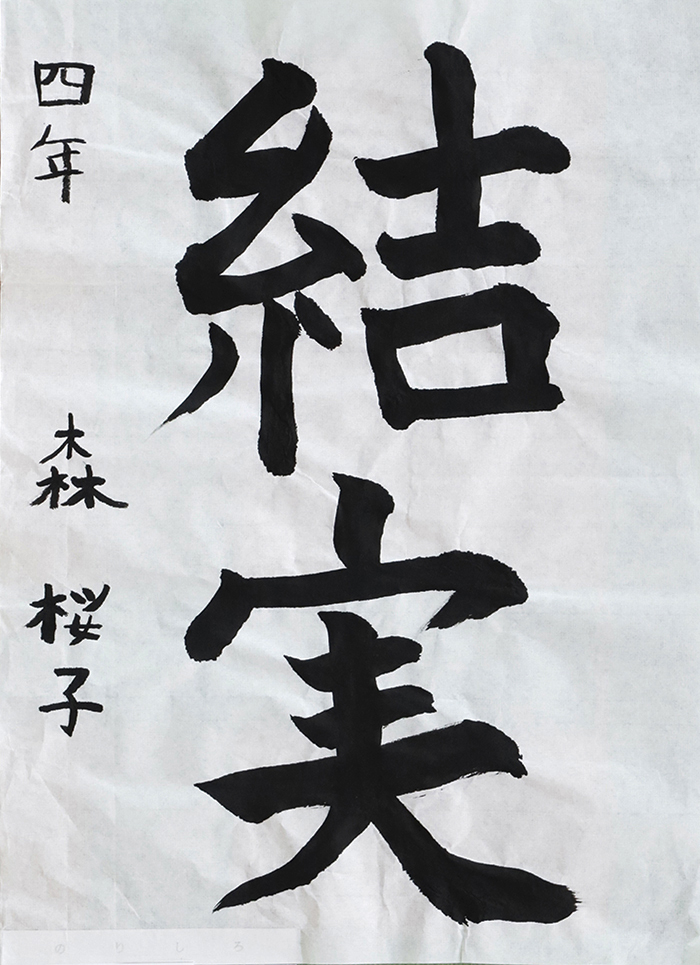 結実
四年 森 桜子
のりしろ